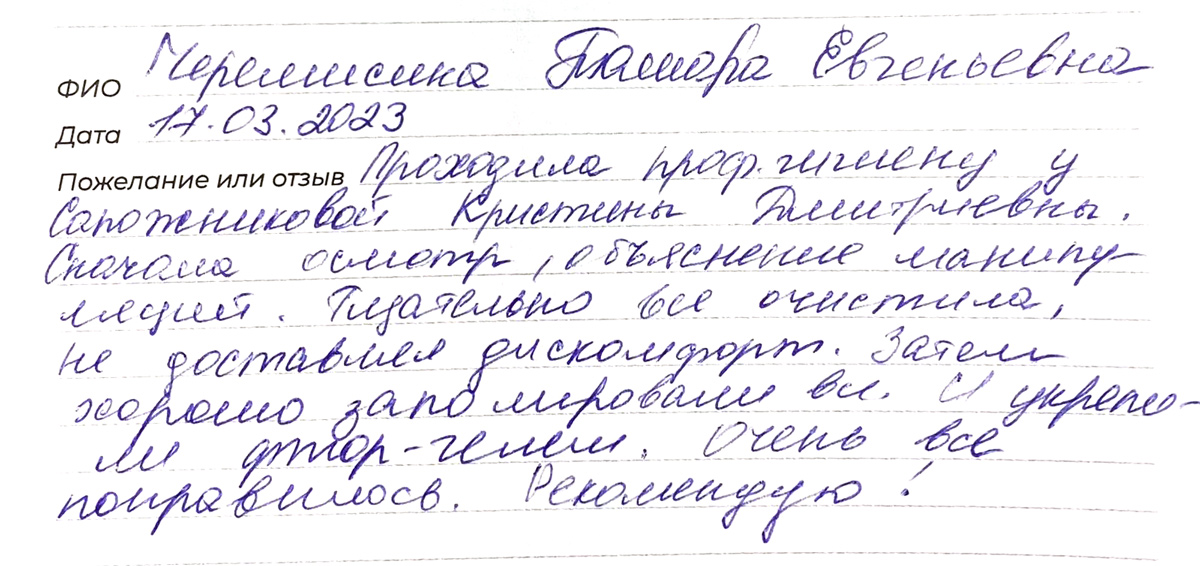 ФИО Черемисина Тамара Евгеньевна
Дата 17.03.2023
Пожелание или отзыв Проходила проф.гигиену у
Сапожниковой Кристины Дмитриевны.
Сначала осмотр, объяснение манипу-
ляций. Тщательно все очистила,
не доставляя дискомфорт. Затем
хорошо заполировали все. И укрепи-
ли фтор-гелем. Очень все
понравилось. Рекомендую!